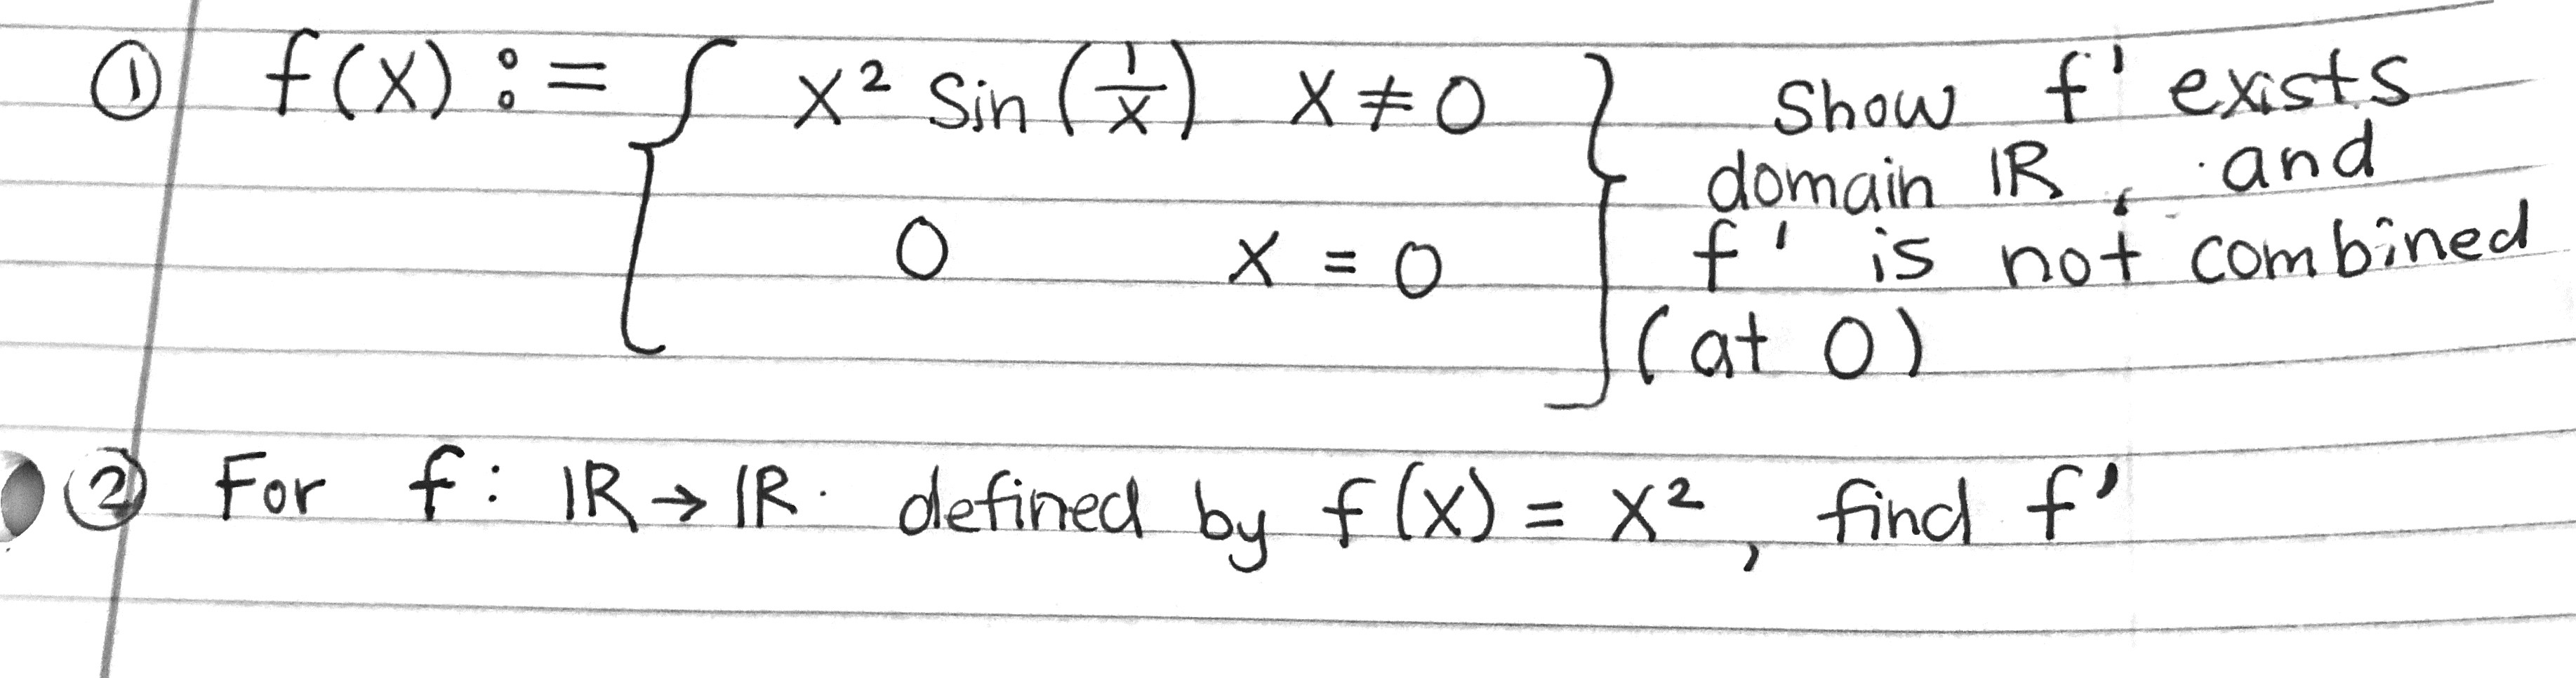 ① f(x) := { x² Sin(1/x) x≠0 } Show f' exists
domain ℝ, and
0 x = 0 f' is not combined
(at 0)
② For f: ℝ→ℝ defined by f(x) = x², find f'